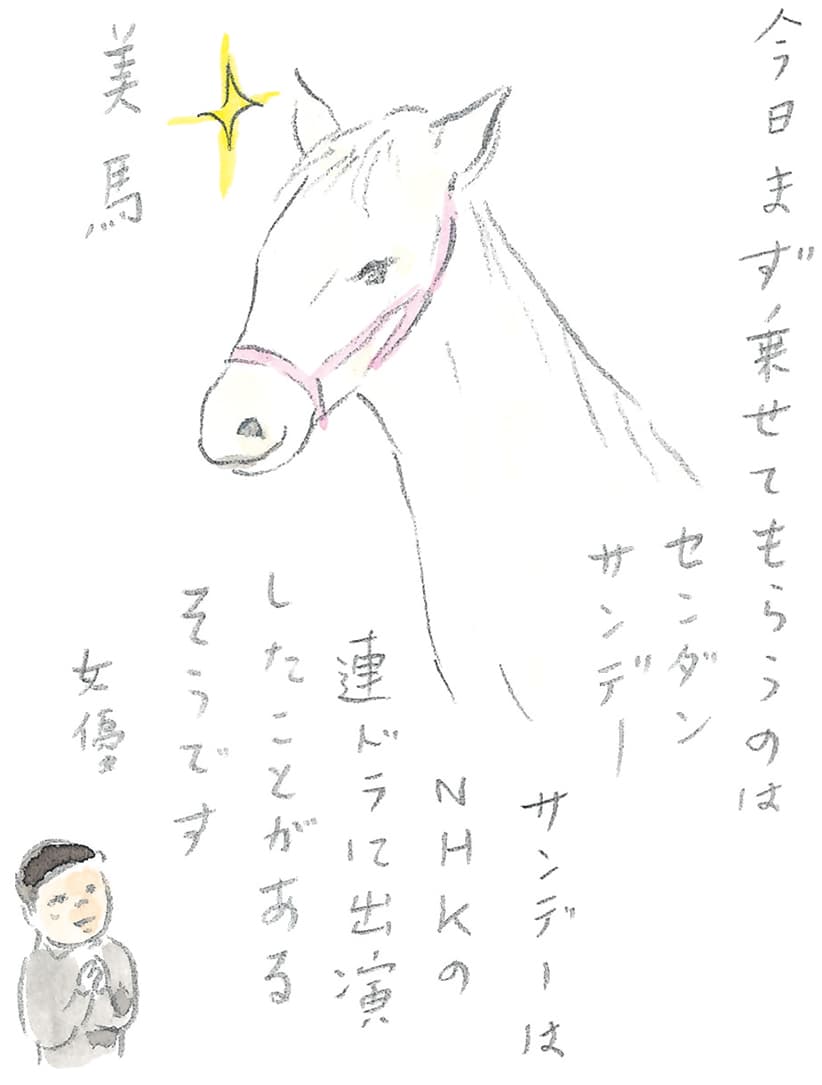 今日まず乗せてもらうのは
センダン
サンデー
サンデーは
NHKの
連ドラに出演
したことがある
そうです
女優
美馬